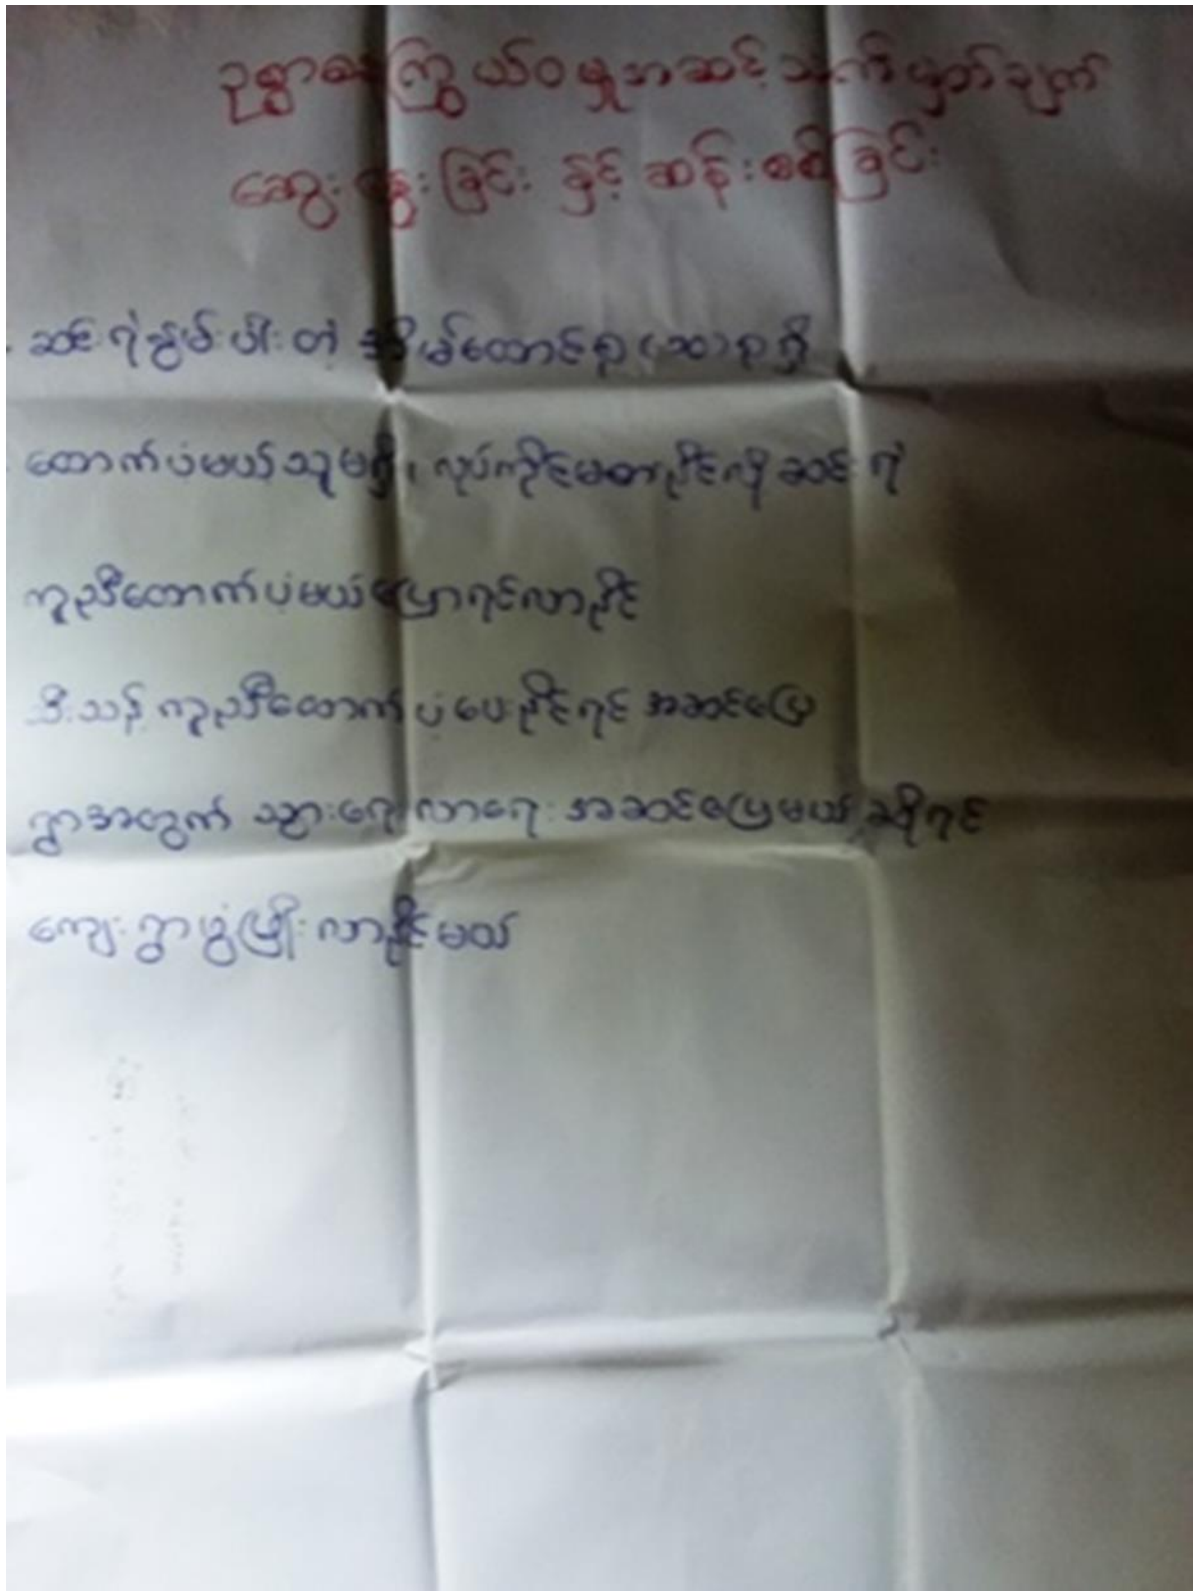 ဥစ္စာဓနကြွယ်ဝမှုအဆင့်သတ်မှတ်ချက်
ဆွေးနွေးခြင်း နှင့် ဆန်းစစ်ခြင်း
ဆင်းရဲနွမ်းပါးတဲ့ အိမ်ထောင်စု (၁၁) စုရှိ
ထောက်ပံ့မယ့်သူမရှိ၊ လုပ်ကိုင်မစားနိုင်လို့ဆင်းရဲ
ကူညီထောက်ပံ့မယ် ပြောရင်လာနိုင်
သီးသန့် ကူညီထောက်ပံ့ပေးနိုင်ရင် အဆင်ပြေ
ရွာအတွက် သွားရေးလာရေး အဆင်ပြေမယ်ဆိုရင်
ကျေးရွာဖွံ့ဖြိုးလာနိုင်မယ်